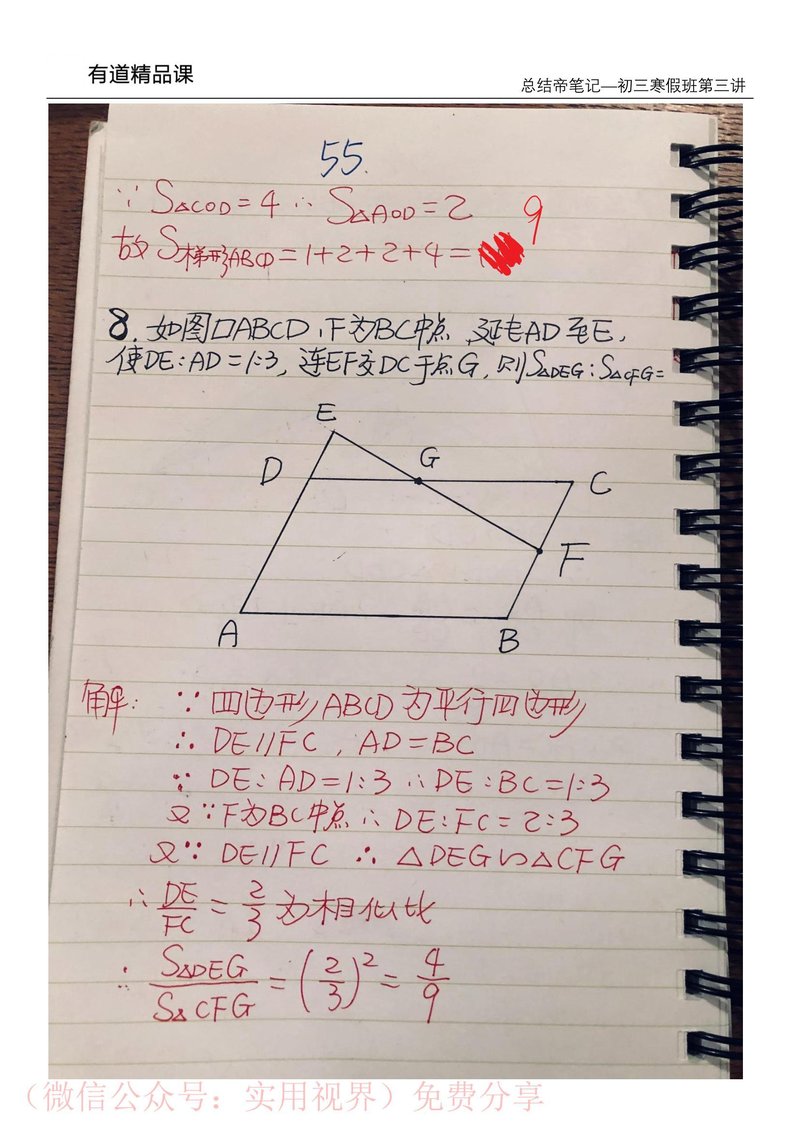 有道精品课
总结帝笔记—初三寒假班第三讲
55.
∵ S△COD=4 ∴ S△AOD=2 9
故S梯形ABCD=1+2+2+4=
8. 如图▱ABCD,F为BC中点,延长AD至E,
使DE:AD=1:3,连EF交DC于点G,则S△DEG:S△CFG=
E
G
D
C
F
A
B
解: ∵ 四边形ABCD为平行四边形
∴ DE//FC,AD=BC
∵ DE:AD=1:3 ∴ DE:BC=1:3
又∵F为BC中点 ∴ DE:FC=2:3
又∵ DE//FC ∴ △DEG∽△CFG
∴ DE/FC = 2/3 为相似比
∴ S△DEG/S△CFG = (2/3)² = 4/9
(微信公众号:实用视界)免费分享